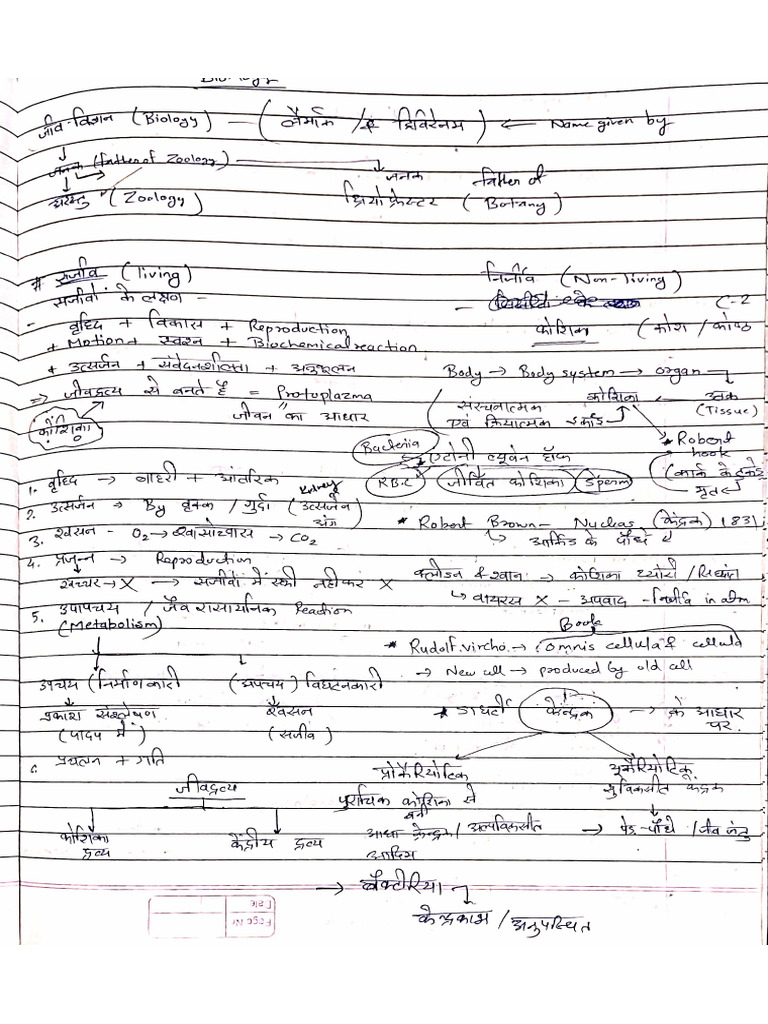 Biology
जीव-विज्ञान (Biology) — (लैमार्क / & ट्रिविरेनस) ← Name given by
जनक (Father of Zoology) → जनक Father of
अरस्तु (Zoology) थ्रियोफ्रेस्टर (Botany)
# सजीव (living)
सजीवों के लक्षण -
- वृध्दि + विकास + Reproduction
+ Motion + स्वशन + Biochemical reaction
+ उत्सर्जन + संवेदनशीलता + अनुकूलन
⇒ जीवद्रव्य से बनते है = Protoplazma
जीवन "का आधार
कोशिका
1. वृध्दि → बाहरी + आंतरिक
2. उत्सर्जन → By वृक्क / गुर्दा (उत्सर्जन अंग) Kidney
3. श्वसन - O2 → श्वासोच्छवास → CO2
4. प्रजनन → Reproduction
खच्चर → X → सजीवों में स्त्री नहीकर X
5. उपापचय / जैव रासायनिक Reaction
(Metabolism)
उपचय (निर्माणकारी (अपचय) विघटनकारी
प्रकाश संश्लेषण श्वसन
(पादप में) (सजीव)
6. प्रचलन + गति
जीवद्रव्य
कोशिका द्रव्य केंद्रीय द्रव्य
निर्जीव (Non-living)
C-2
कोशिका (कोश / कोष्ठ
Body → Body system → organ
ऊतक (Tissue)
कोशिका
संरचनात्मक एवं क्रियात्मक इकाई
* Robert hook
(कार्क के टुकड़े
मृत
Bacteria
एटोनी ल्यूवेन हॉक
RBC जीवित कोशिका Sperm
* Robert Brown - Nucleas (केंद्रक) 1831
आर्किड के पौधे से
क्लीडन & श्वान → कोशिका थ्योरी / सिध्दांत
वायरस X - अपवाद - निर्जीव in atm
Book
* Rudolf.vircho. → (omnis cellula & cellula
→ New cell → produced by old cell
* केन्द्रक → के आधार पर.
प्रोकैरियोटिक यूकैरियोटिक
पुरारिक कोशिका से बनी सुविकसीत केंद्रक
आधा केन्द्रक / अल्पविकसीत → पेड-पौधे / जीव जंतु
आदिम
→ बैक्टीरिया
केन्द्रकाभ / अनुपस्थित
Page No
Date